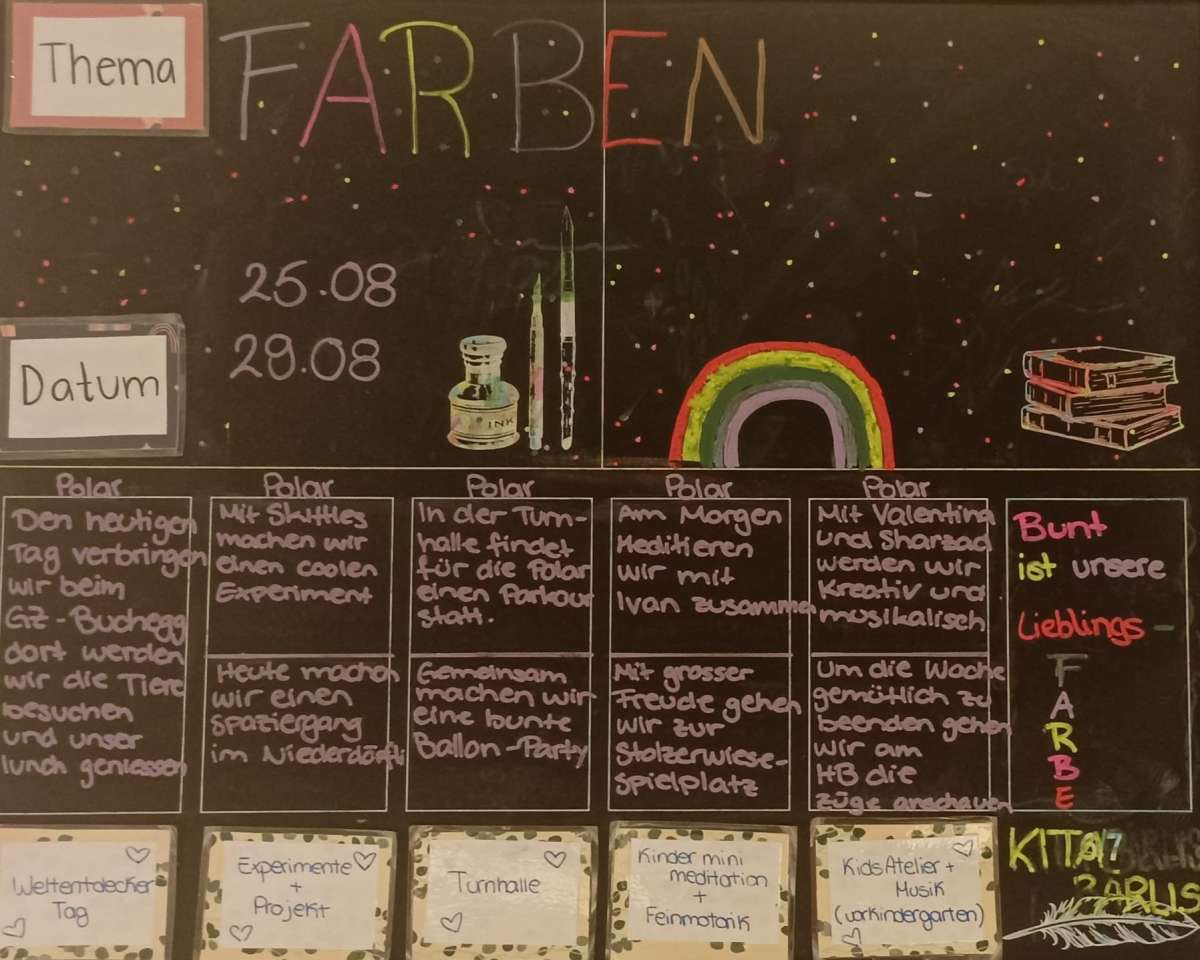 Thema
FARBEN
25.08
29.08
Datum
INK
Polar
Den heutigen
Tag verbringen
wir beim
GZ-Buchegg
dort werden
wir die Tiere
besuchen
und unser
lunch geniessen
Weltentdecker
Tag
Polar
Mit Skittles
machen wir
einen coolen
Experiment
Heute machen
wir einen
spaziergang
im Niederdörfli
Experimente
+
Projekt
Polar
In der Turn-
halle findet
für die Polar
einen Parkour
statt.
Gemeinsam
machen wir
eine bunte
Ballon-Party
Turnhalle
Polar
Am Morgen
Meditieren
wir mit
Ivan zusammen
Mit grosser
Freude gehen
wir zur
Stolzerwiese-
spielplatz
Kinder mini
meditation
+
Feinmotorik
Polar
Mit Valentina
und Sharzad
werden wir
Kreativ und
musikalisch
Um die Woche
gemütlich zu
beenden gehen
wir am
HB die
züge anschauen
KidsAtelier +
Musik
(vorkindergarten)
Bunt
ist unsere
Lieblings-
F
A
R
B
E